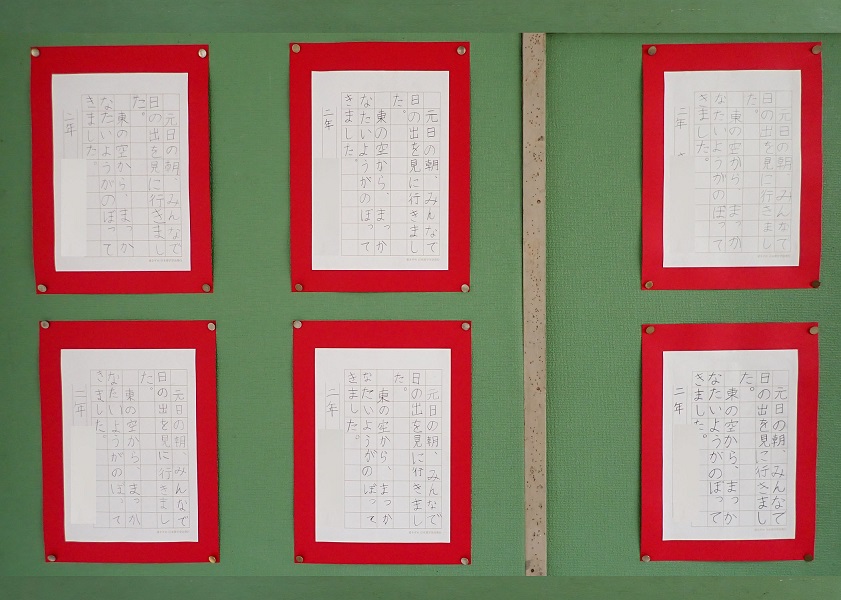 元日の朝、みんなで
日の出を見に行きまし
た。
東の空から、まっか
なたいようがのぼって
きました。
二年
元日の朝、みんなで
日の出を見に行きまし
た。
東の空から、まっか
なたいようがのぼって
きました。
二年
元日の朝、みんなで
日の出を見に行きまし
た。
東の空から、まっか
なたいようがのぼって
きました。
二年
元日の朝、みんなで
日の出を見に行きまし
た。
東の空から、まっか
なたいようがのぼって
きました。
二年
元日の朝、みんなで
日の出を見に行きまし
た。
東の空から、まっか
なたいようがのぼって
きました。
二年
元日の朝、みんなで
日の出を見に行きまし
た。
東の空から、まっか
なたいようがのぼって
きました。
二年